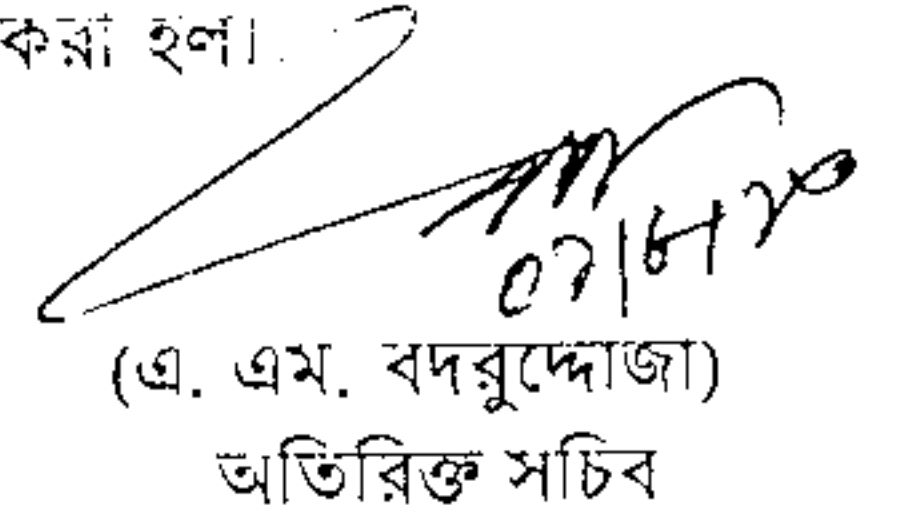 করা হল।
(এ. এম. বদরুদ্দোজা)
অতিরিক্ত সচিব